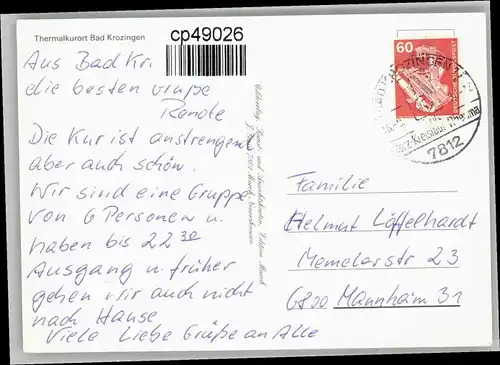 Thermalkurort Bad Krozingen
cp49026
Aus Bad Kr.
die besten Grüße
Renate
Die Kur ist anstrengen
aber auch schön.
Wir sind eine Gruppe
von 6 Personen u.
haben bis 22 30
Ausgang u. früher
gehen wir auch nicht
nach Hause
Viele Liebe Grüße an Alle
60
DEUTSCHE BUNDESPOST
BAD KROZINGEN
Herz-Kreislauf-Rheuma
7812
Familie
Helmut Löffelhardt
Memelerstr 23
6800 Mannheim 31